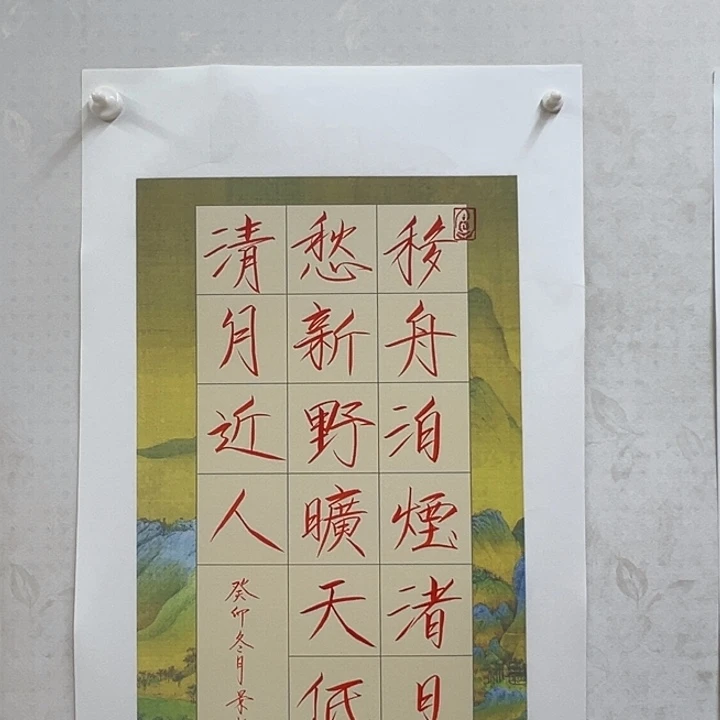 移舟泊煙渚日
愁新野曠天低
清月近人
癸卯冬月景